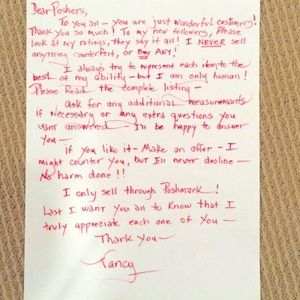 Dear Poshers,
To you all - you are just wonderful customers!
Thank you so much! To my new followers, Please
look at my ratings, they say it all! I NEVER sell
anything counterfeit, or Buy ANY!
I always try to represent each item to the
best of my ability - but I am only human!
Please Read the complete listing -
ask for any additional measurements
if necessary or any extra questions you
want answered - I'll be happy to answer
you -
if you like it - Make an offer - I
might counter you, but I'll never decline -
No harm done!!
I only sell through Poshmark!
Last I want you all to know that I
truly appreciate each one of you -
Thank you -
Nancy